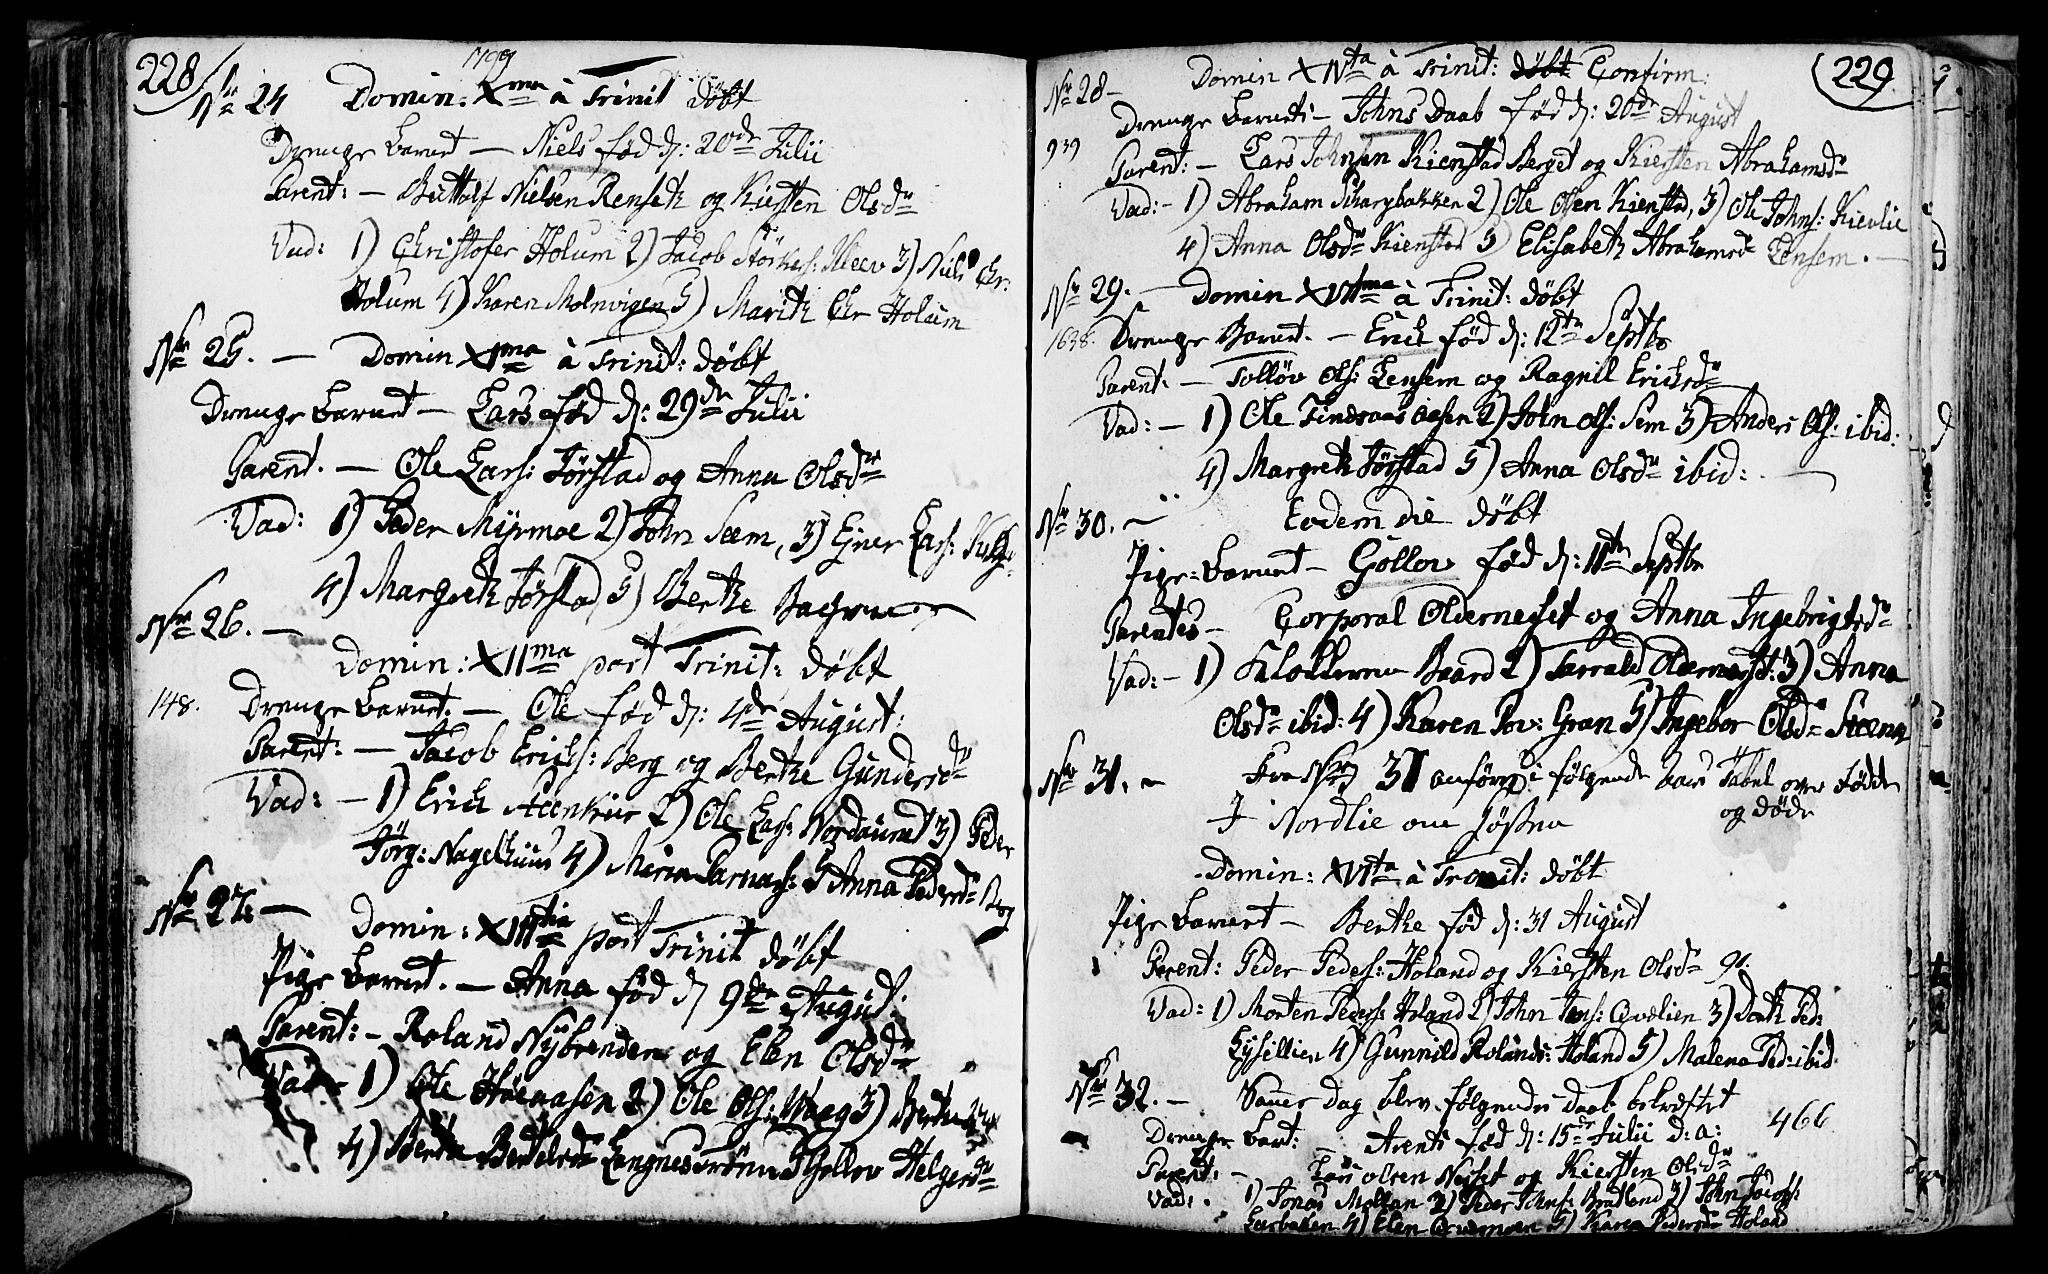 228
1799
Nr 24 Domin: Xma à Trinit døbt
Drenge Barnet — Niels fød d: 20de Julii
Parent: — Buttolf Nielsen Renseth og Kiersten Olsdr
Vad: 1) Christofer Holum 2) Jacob Størkers: Kleev 3) Niels Chr:
Holum 4) Karen Molnvigen 5) Marith Chr Holum
Nr 25. — Domin XIma à Trinit: døbt
Drenge Barnet — Lars fød d: 29de Julii
Parent. — Ole Lars: Førstad og Anna Olsdr
Vad: 1) Peder Myrmoe 2) John Seem, 3) Ejner Lars:
4) Margreth Førstad 5) Berthe
Nr 26. —
Domin: XIIma post Trinit: døbt
148. Drenge Barnet. — Ole fød d: 4de August:
Parent: — Jacob Erichs: Berg og Berthe Gundersdr
Vad: — 1) Erich Steenkier 2) Ole Lars: Nordaunet 3) Peder
Jörg: Nagelhuus 4) Maria Parnas: 5 Anna Pedersdr Berg
Nr 27. —
Domin: XIIItia post Trinit døbt
Pige Barnet. — Anna fød d 9de August.
Parent: — Roland Nybrenden og Elen Olsdr
Vad — 1) Ole 2) Ole Ols: Waag 3)
4) Berthe Bertelsdr 5 Gollov Helgesdr
229
Nr 28 — Domin XIVta à Trinit: døbt Confirm:
Drenge Barnets — Johns Daab fød d: 20de August
939 Parent: — Lars Johnsen Kienstad Berget og Kiersten Abrahamsdr
Vad: — 1) Abraham 2) Ole Olsen Kienstad, 3) Ole Johns: Kievlie
4) Anna Olsdr Kienstad 5 Elisabeth Abrahamsdr Lensem. —
Nr 29. — Domin XVIIma à Trinit: døbt
1638. Drenge Barnet. — Erich fød d: 12te Septbr
Parent: — Tolløv Ols: Lensem og Ragnil Erichsdr
Vad: — 1) Ole Findsaas 2) John Ols: Sem 3) Anders Ols: ibid:
4) Margreth Førstad 5) Anna Olsdr ibid:
Nr 30. — Eodem die døbt
Pige-Barnet — Gollov fød d: 11te Septbr
Parentes — Corporal Oldernesset og Anna Ingebrigtsdr
Vad: — 1) Klokkeren Baard 2) Oldernesset: 3) Anna
Olsdr ibid: 4) Karen Pov: Gran 5) Ingebor Olsdr Steena
Nr 31. — Fra Nro 31 anføres i følgende Aars Tabel over fødde
og døde
I Nordlie
Domin: XVIta à Trinit: døbt
Pige Barnet — Berthe fød d: 31 August
Parent: Peder Peders: Holand og Kiersten Olsdr 91.
Vad: 1) Morten Peders: Holand 2) John Jens: Qvelien 3) Dorth Ped:
4) Gunnild Rolands: Holand 5) Malena Ped: ibid
Nr 32. — Samme Dag blev følgende Daab bekræftet
466
Drenge Barnet: — Arents fød d: 15de Julii d: a:
Parent: — Lars Olsen Neset og Kiersten Olsdr
Vad: . 1) Jonas Mollan 2) Peder Johns: 3) John Jacobs:
4) Elen 5) Karen Pedersdr Holand